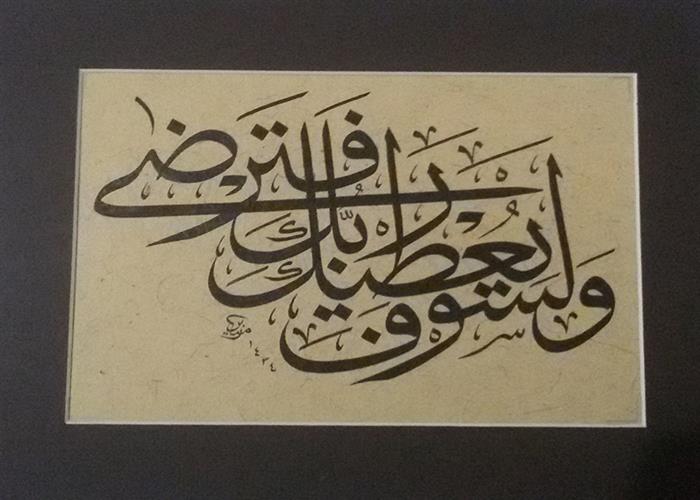 ولسوف يعطيك ربك فترضى
١٤٢٤